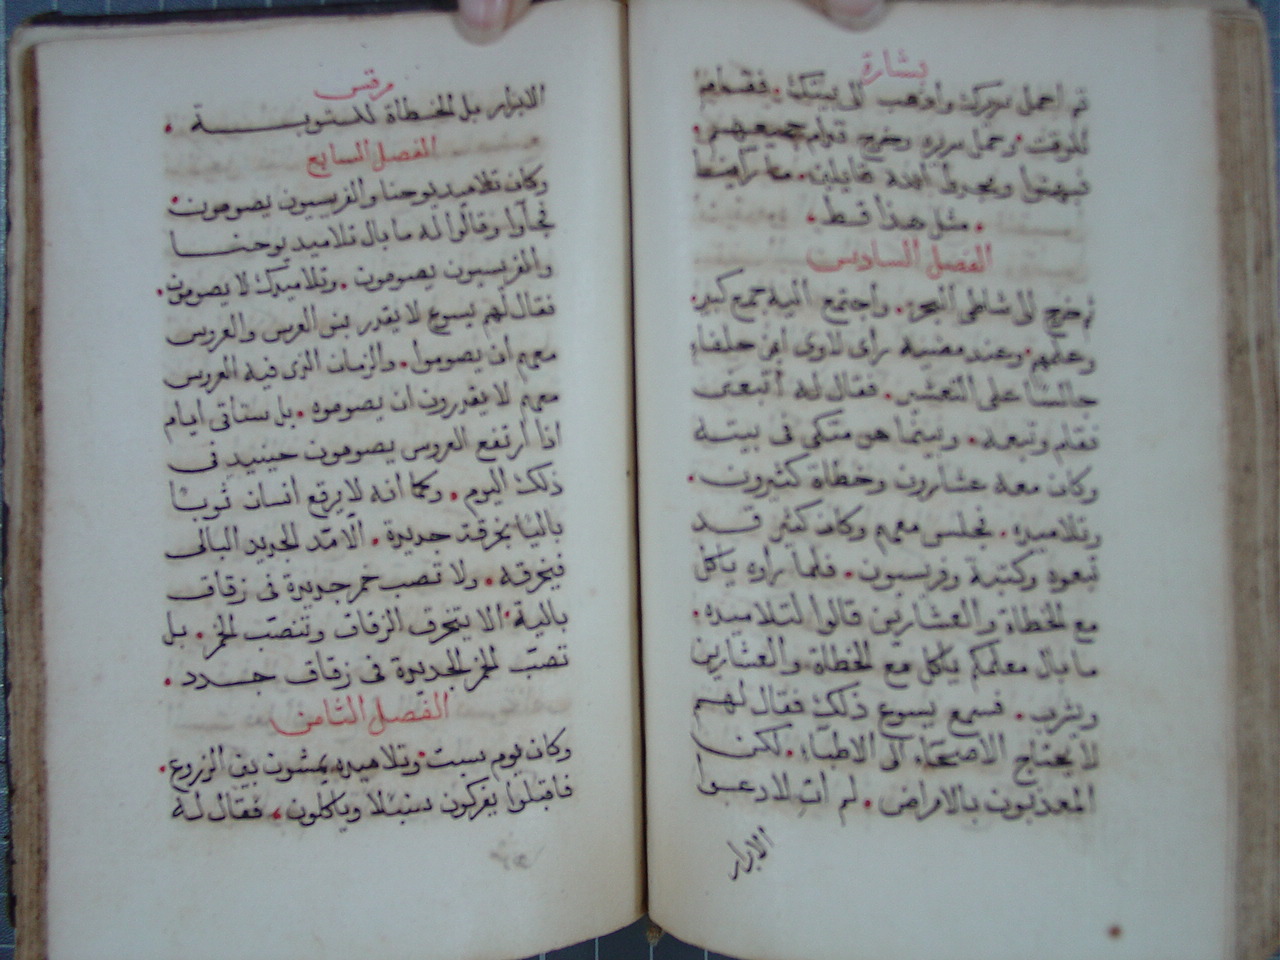 بشارة
ثم احمل سريرك واذهب الى بيتك. فقام
للوقت. وحمل سريره وخرج قدام جميعهم.
فبهتوا ومجدوا الله قايلين. ما راينا
. مثل هذا قط.
الفصل السادس
ثم خرج الى شاطى البحر. واجتمع اليه جمع كبير.
وعلمهم. وعند مضيه راى لاوى ابن حلفاء
جالسًا على التعشير. فقال له اتبعنى
فقام وتبعه. وبينما هو متكى فى بيته
وكان معه عشارون وخطاة كثيرون.
وتلاميذه. فجلس معهم وكان كثير قد
تبعوه وكتبة وفريسيون. فلما راوه ياكل
مع الخطاة والعشارين قالوا لتلاميذه.
ما بال معلمكم ياكل مع الخطاة والعشارين
ويشرب. فسمع يسوع ذلك فقال لهم
لا يحتاج الاصحاء الى الاطباء. لكن
المعذبون بالامراض. لم ات لادعوا
الابرار
مرقس
الابرار بل الخطاة للتوبة.
الفصل السابع
وكان تلاميد يوحنا والفريسيون يصومون.
فجآوا وقالوا له ما بال تلاميد يوحنا
والفريسيون يصومون. وتلاميدك لا يصومون.
فقال لهم يسوع لا يقدر بنو العرس والعروس
معهم ان يصوموا. والزمان الذى فيه العروس
معهم لا يقدرون ان يصوموه. بل ستاتى ايام
اذا ارتفع العروس يصومون حينيد فى
ذلك اليوم. وكما انه لا يرقع انسان ثوبًا
باليًا بخرقة جديدة. الا مد الجديد البالى
فيخرقه. ولا تصب خمر جديدة فى زقاق
بالية. الا يتخرق الزقاق وتنصب الخمر. بل
تصب الخمر الجديدة فى زقاق جدد.
الفصل الثامن
وكان يوم سبت. وتلاميده يمشون بين الزروع.
فاقبلوا يفركون سنبلا وياكلون، فقال له